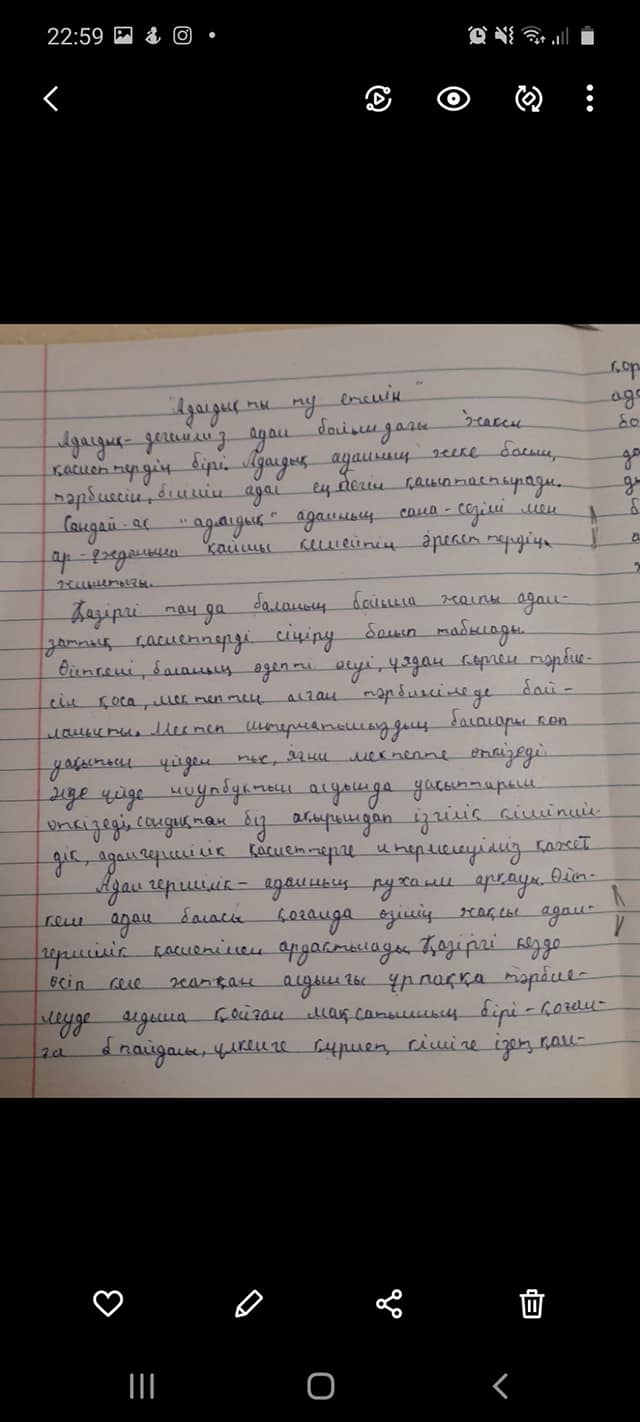 22:59
"Адалдықты ту етемін"
Адалдық- дегеніміз адам бойындағы жақсы
қасиеттердің бірі. Адалдық адамның жеке басын,
тәрбиесін, білімін адал еңбегін қалыптастырады.
Сондай-ақ "адалдық" адамның сана-сезімі мен
ар-ұжданына қайшы келмейтін әрекеттердің
жиынтығы.
Қазіргі таңда баланың бойына жалпы адам-
заттық қасиеттерді сіңіру болып табылады.
Өйткені, баланың әдепті өсуі, ұядан көрген тәрбие-
сін қоса, мектептен алған тәрбиесінеде бай-
ланысты. Мектеп интернатымыздың балалары көп
уақытын үйден тыс, яғни мектепте өткізеді
үйде ноутбуктың алдында уақыттарын
өткізеді, сондықтан біз ақырындап ізгілік кішіпейіл-
дік, адамгершілік қасиеттерге итермелеуіміз қажет
Адамгершілік- адамның рухани арқауы. Өйт-
кені адам баласы қоғамда өзінің жақсы адам-
гершілік қасиетімен ардақталады. Қазіргі кезде
өсіп келе жатқан алдыңғы ұрпаққа тәрбие-
леуде алдына қойған мақсатының бірі-қоғам-
ға пайдалы, үлкенге құрмет, кішіге ізет, қам-
қор